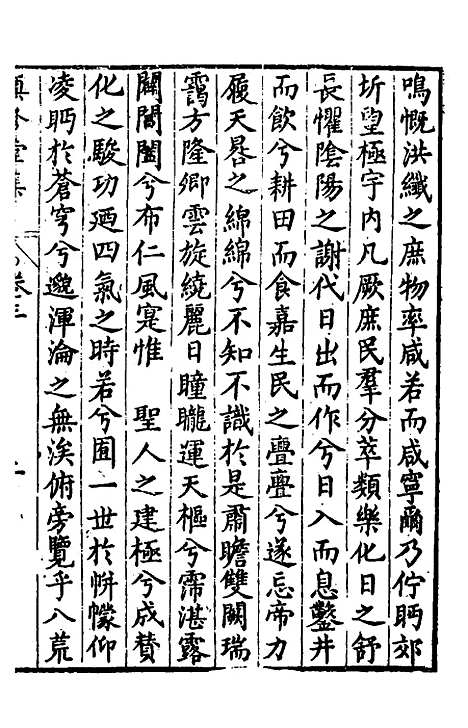 鳴慨洪纖之庶物率咸若而咸寧爾乃佇眄郊
圻望極宇内凡厥庶民羣分萃類樂化日之舒
長懼陰陽之謝代日出而作兮日入而息鑿井
而飲兮耕田而食嘉生民之亹亹兮遂忘帝力
履天晷之綿綿兮不知不識於是肅瞻雙闕瑞
靄方隆卿雲旋繞麗日曈曨運天樞兮霈湛露
闢閶闔兮布仁風寔惟　聖人之建極兮成贊
化之駿功廼四氣之時若兮囿一世於帡幪仰
凌眄於蒼穹兮邈渾淪之無涘俯旁覽乎八荒
卷三